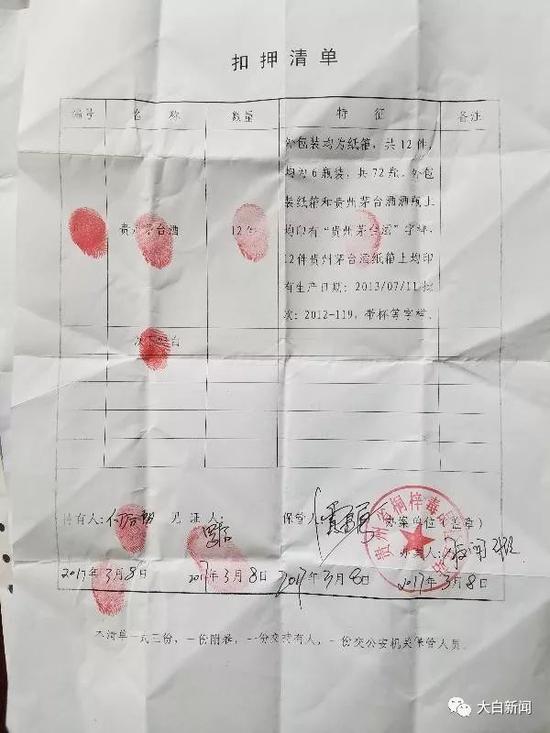 扣押清单
编号 名 称 数量 特 征 备注
外包装均为纸箱，共12件，
均为6瓶装，共72瓶。外包
装纸箱和贵州茅台酒酒瓶上
贵州茅台酒 12件 均印有“贵州茅台酒”字样，
12件贵州茅台酒纸箱上均印
有生产日期：2013/07/11 批
次：2012-119，带杯等字样。
持有人： 见证人： 保管人： 办案单位（盖章）
办案人：
2017年3月8日 2017年3月8日 2017年3月8日 2017年3月8日
本清单一式三份，一份附卷，一份交持有人，一份交公安机关保管人员。
大白新闻